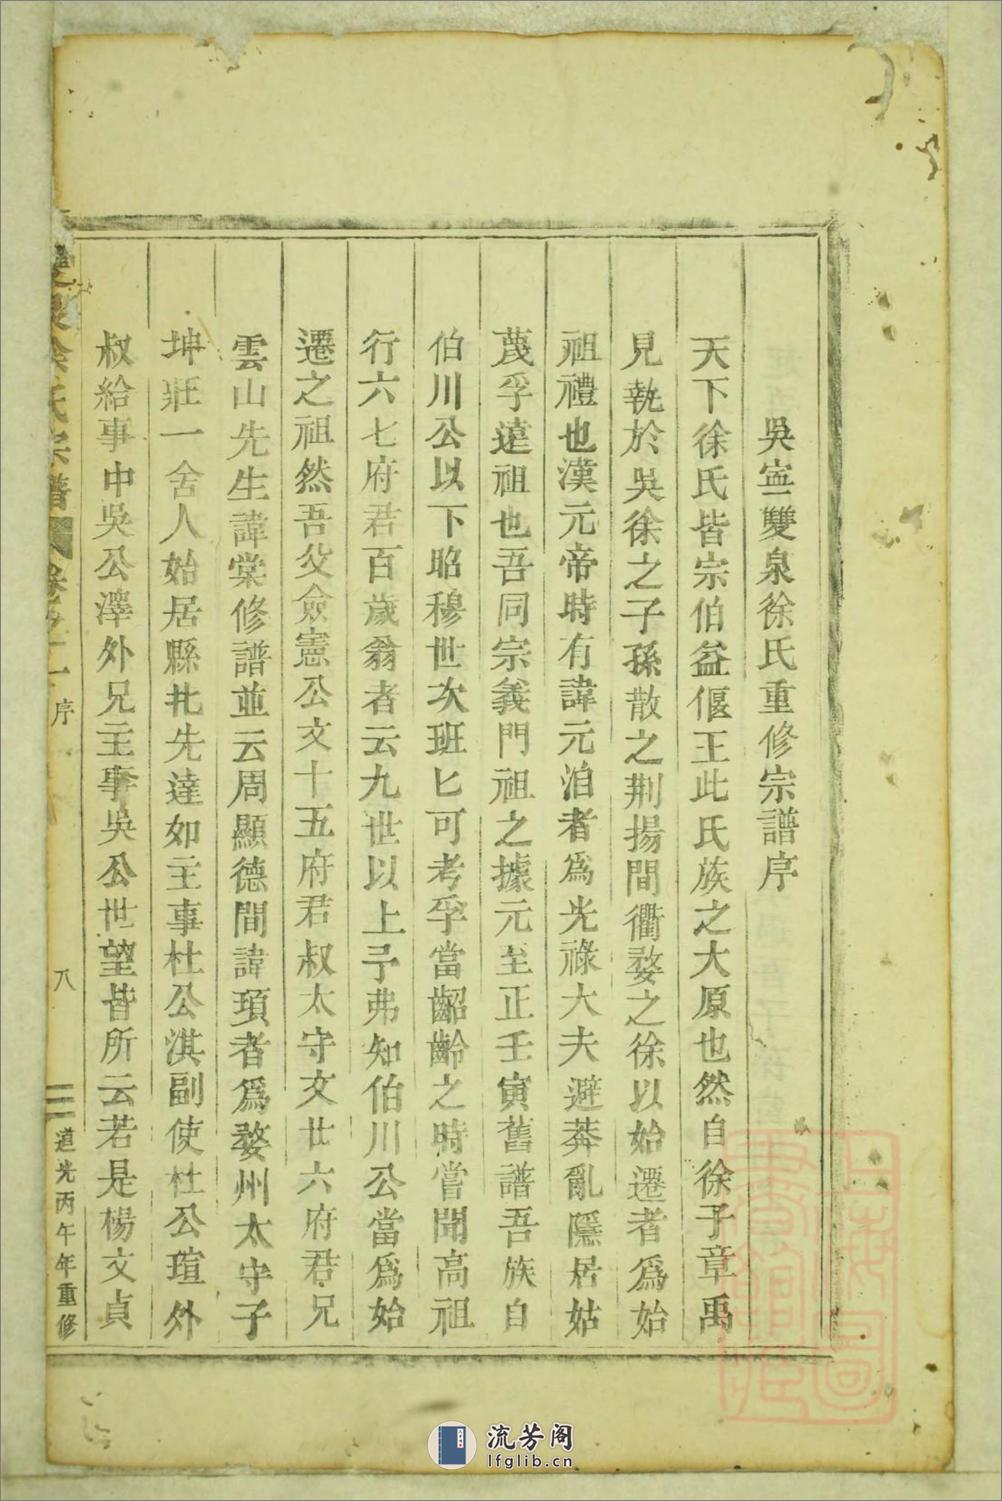 吳寍雙泉徐氏重修宗譜序
天下徐氏皆宗伯益偃王此氏族之大原也然自徐子章禹
見執於吳徐之子孫散之荆揚間衢婺之徐以始遷者爲始
祖禮也漢元帝時有諱元洎者爲光祿大夫避莽亂隱居姑
蔑孚遠祖也吾同宗義門祖之據元至正壬寅舊譜吾族自
伯川公以下昭穆世次班匕可考孚當齠齡之時嘗聞高祖
行六七府君百歲翁者云九世以上予弗知伯川公當爲始
遷之祖然吾父僉憲公文十五府君叔太守文廿六府君兄
雲山先生諱棠修譜並云周顯德間諱頊者爲婺州太守子
坤莊一舍人始居縣北先達如主事杜公淇副使杜公瑄外
叔給事中吳公澤外兄主事吳公世望皆所云若是楊文貞
雙泉徐氏宗譜 卷之一 序 八 道光丙午年重修
上海圖書館藏
流芳阁
lfglib.cn